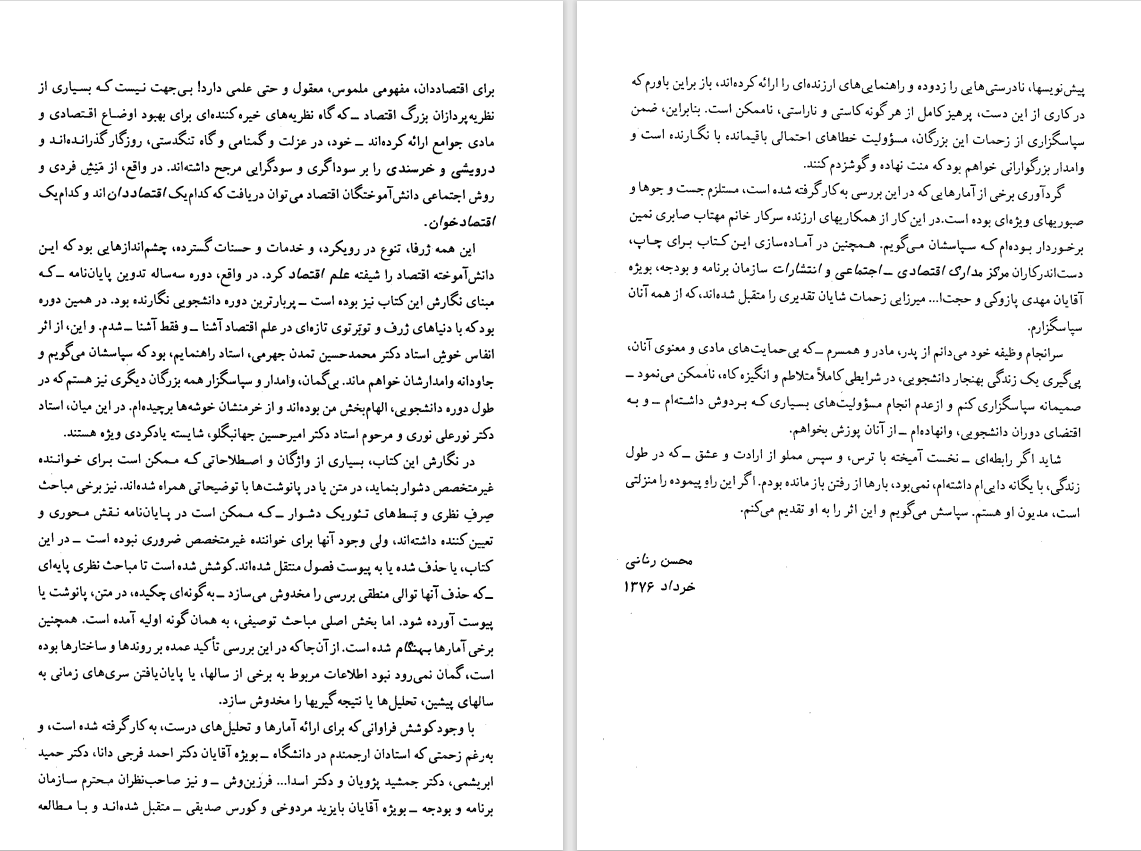 برای اقتصاددان، مفهومی ملموس، معقول و حتی علمی دارد! بی‌جهت نیست که بسیاری از
نظریه‌پردازان بزرگ اقتصاد ــ که گاه نظریه‌های خیره کننده‌ای برای بهبود اوضاع اقتصادی و
مادی جوامع ارائه کرده‌اند ــ خود، در عزلت و گمنامی و گاه تنگدستی، روزگار گذرانده‌اند و
درویشی و خرسندی را بر سوداگری و سودگرایی مرجح داشته‌اند. در واقع، از مَنِشِ فردی و
روش اجتماعی دانش‌آموختگان اقتصاد می‌توان دریافت که کدام‌یک اقتصاددان‌اند و کدام‌یک
اقتصادخوان.
این همه ژرفا، تنوع در رویکرد، و خدمات و حسنات گسترده، چشم‌اندازهایی بود که این
دانش‌آموخته اقتصاد را شیفته علم اقتصاد کرد. در واقع، دوره سه‌ساله تدوین پایان‌نامه ــ که
مبنای نگارش این کتاب نیز بوده است ــ پربارترین دوره دانشجویی نگارنده بود. در همین دوره
بود که با دنیاهای ژرف و توبَرتوی تازه‌ای در علم اقتصاد آشنا ــ و فقط آشنا ــ شدم. و این، از اثر
انفاس خوشِ استاد دکتر محمدحسین تمدن جهرمی، استاد راهنمایم، بود که سپاسشان می‌گویم و
جاودانه وامدارشان خواهم ماند. بی‌گمان، وامدار و سپاسگزار همه بزرگان دیگری نیز هستم که در
طول دوره دانشجویی، الهام‌بخش من بوده‌اند و از خرمنشان خوشه‌ها برچیده‌ام. در این میان، استاد
دکتر نورعلی نوری و مرحوم استاد دکتر امیرحسین جهانبگلو، شایسته یادکردی ویژه هستند.
در نگارش این کتاب، بسیاری از واژگان و اصطلاحاتی که ممکن است برای خواننده
غیرمتخصص دشوار بنماید، در متن یا در پانوشت‌ها با توضیحاتی همراه شده‌اند. نیز برخی مباحث
صِرفِ نظری و بَسط‌های تئوریک دشوار ــ که ممکن است در پایان‌نامه نقش محوری و
تعیین کننده داشته‌اند، ولی وجود آنها برای خواننده غیرمتخصص ضروری نبوده است ــ در این
کتاب، یا حذف شده یا به پیوست فصول منتقل شده‌اند. کوشش شده است تا مباحث نظری پایه‌ای
ــ که حذف آنها توالی منطقی بررسی را مخدوش می‌سازد ــ به‌گونه‌ای چکیده، در متن، پانوشت یا
پیوست آورده شود. اما بخش اصلی مباحث توصیفی، به همان گونه اولیه آمده است. همچنین
برخی آمارها بهنگام شده است. از آن‌جا که در این بررسی تأکید عمده بر روندها و ساختارها بوده
است، گمان نمی‌رود نبود اطلاعات مربوط به برخی از سالها، یا پایان‌یافتن سری‌های زمانی به
سالهای پیشین، تحلیل‌ها یا نتیجه‌گیریها را مخدوش سازد.
با وجود کوشش فراوانی که برای ارائه آمارها و تحلیل‌های درست، به‌کار گرفته شده است، و
به‌رغم زحمتی که استادان ارجمندم در دانشگاه ــ بویژه آقایان دکتر احمد فرجی دانا، دکتر حمید
ابریشمی، دکتر جمشید پژویان و دکتر اسدا... فرزین‌وش ــ و نیز صاحب‌نظران محترم سازمان
برنامه و بودجه ــ بویژه آقایان بایزید مردوخی و کورس صدیقی ــ متقبل شده‌اند و با مطالعه
پیش‌نویسها، نادرستی‌هایی را زدوده و راهنمایی‌های ارزنده‌ای را ارائه کرده‌اند، باز براین باورم که
در کاری از این دست، پرهیز کامل از هر گونه کاستی و ناراستی، ناممکن است. بنابراین، ضمن
سپاسگزاری از زحمات این بزرگان، مسؤولیت خطاهای احتمالی باقیمانده با نگارنده است و
وامدار بزرگوارانی خواهم بود که منت نهاده و گوشزدم کنند.
گردآوری برخی از آمارهایی که در این بررسی به‌کار گرفته شده است، مستلزم جست و جوها و
صبوریهای ویژه‌ای بوده است. در این کار از همکاریهای ارزنده سرکار خانم مهتاب صابری نمین
برخوردار بوده‌ام که سپاسشان می‌گویم. همچنین در آماده‌سازی این کتاب برای چاپ،
دست‌اندرکاران مرکز مدارک اقتصادی ــ اجتماعی و انتشارات سازمان برنامه و بودجه، بویژه
آقایان مهدی پازوکی و حجت‌ا... میرزایی زحمات شایان تقدیری را متقبل شده‌اند، که از همه آنان
سپاسگزارم.
سرانجام وظیفه خود می‌دانم از پدر، مادر و همسرم ــ که بی‌حمایت‌های مادی و معنوی آنان،
پی‌گیری یک زندگی بهنجار دانشجویی، در شرایطی کاملاً متلاطم و انگیزه کاه، ناممکن می‌نمود ــ
صمیمانه سپاسگزاری کنم و از عدم انجام مسؤولیت‌های بسیاری که بردوش داشته‌ام ــ و به
اقتضای دوران دانشجویی، وانهاده‌ام ــ از آنان پوزش بخواهم.
شاید اگر رابطه‌ای ــ نخست آمیخته با ترس، و سپس مملو از ارادت و عشق ــ که در طول
زندگی، با یگانه دایی‌ام داشته‌ام، نمی‌بود، بارها از رفتن باز مانده بودم. اگر این راهِ پیموده را منزلتی
است، مدیون او هستم. سپاسش می‌گویم و این اثر را به او تقدیم می‌کنم.
محسن رنانی
خرداد ۱۳۷۶